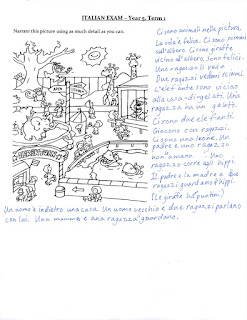 ITALIAN EXAM – Year 5, Term 1
Narrate this picture using as much detail as you can.
Ci sono animali nella pictura.
La sole è felice. Ci sono rossami
sull'albero. Ci sono giraffe
vicino all'albero, sono felici.
Uno ragazzo li vede.
Due ragazzi vedono scimmi.
L'elefante sono vicino
alla casa di gelati. Una
ragazza ha un gelato.
Ci sono due elefanti.
Giocono con ragazzi.
Ci sono uno leone. Un
padre e uno ragazzo
non amano. Uno
ragazzo corre agli hippi.
Il padre e la madre e due
ragazzi guardano hippi.
(Le girafe ha puntini)
Un uomo è indietro una casa. Un uomo vecchio e due ragazzi parlano
con lui. Una mamma e una ragazza guardano.